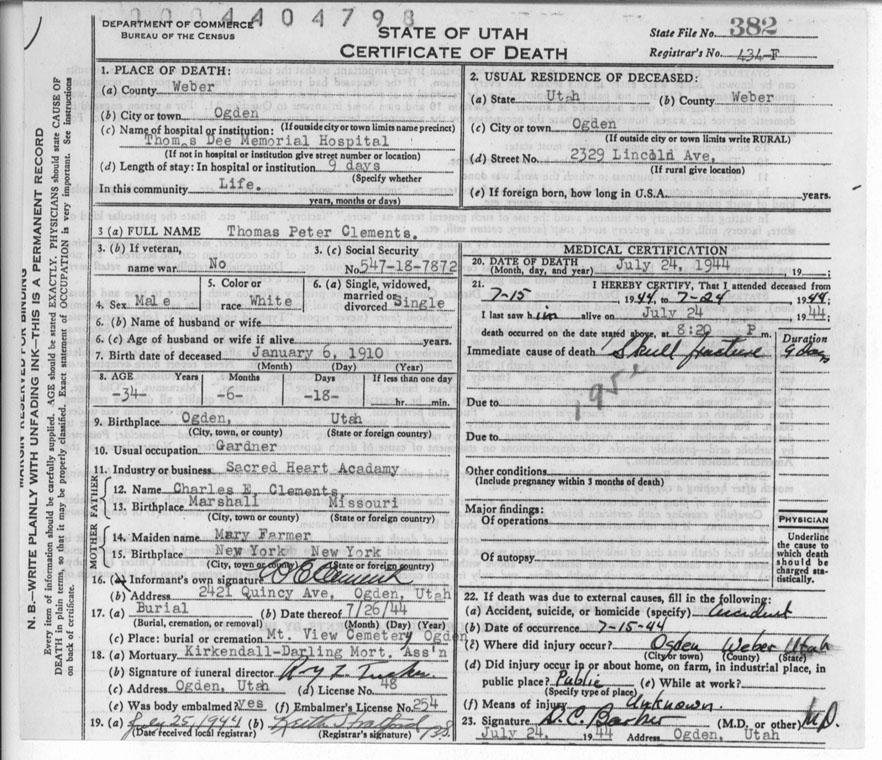 0004404798
DEPARTMENT OF COMMERCE
BUREAU OF THE CENSUS
STATE OF UTAH
CERTIFICATE OF DEATH
State File No. 382
Registrar's No. 434-F
MARGIN RESERVED FOR BINDING
N. B.—WRITE PLAINLY WITH UNFADING INK—THIS IS A PERMANENT RECORD
Every item of information should be carefully supplied. AGE should be stated EXACTLY. PHYSICIANS should state CAUSE OF
DEATH in plain terms, so that it may be properly classified. Exact statement of OCCUPATION is very important. See instructions
on back of certificate.
1. PLACE OF DEATH:
(a) County Weber
(b) City or town Ogden
(If outside city or town limits name precinct)
(c) Name of hospital or institution:
Thomas Dee Memorial Hospital
(If not in hospital or institution give street number or location)
(d) Length of stay: In hospital or institution 9 days
(Specify whether
In this community Life.
years, months or days)
2. USUAL RESIDENCE OF DECEASED:
(a) State Utah (b) County Weber
(c) City or town Ogden
(If outside city or town limits write RURAL)
(d) Street No. 2329 Lincoln Ave,
(If rural give location)
(e) If foreign born, how long in U.S.A. years.
3 (a) FULL NAME Thomas Peter Clements.
3. (b) If veteran,
name war No
3. (c) Social Security
No. 547-18-7872
4. Sex Male
5. Color or
race White
6. (a) Single, widowed,
married or
divorced Single
6. (b) Name of husband or wife
6. (c) Age of husband or wife if alive years.
7. Birth date of deceased January 6, 1910
(Month) (Day) (Year)
8. AGE Years Months Days If less than one day
-34- -6- -18- hr. min.
9. Birthplace Ogden, Utah
(City, town, or county) (State or foreign country)
10. Usual occupation Gardner
11. Industry or business Sacred Heart Acadamy
FATHER
12. Name Charles E. Clements,
13. Birthplace Marshall Missouri
(City, town or county) (State or foreign country)
MOTHER
14. Maiden name Mary Farmer
15. Birthplace New York New York
(City, town or county) (State or foreign country)
16. (a) Informant's own signature Clements
(b) Address 2421 Quincy Ave, Ogden, Utah
17. (a) Burial (b) Date thereof 7/26/44
(Burial, cremation, or removal) (Month) (Day) (Year)
(c) Place: burial or cremation Mt. View Cemetery Ogden
18. (a) Mortuary Kirkendall-Darling Mort. Ass'n
(b) Signature of funeral director
(c) Address Ogden, Utah (d) License No. 48
(e) Was body embalmed? yes (f) Embalmer's License No. 254
19. (a) July 25, 1944 (b) Keith
(Date received local registrar) (Registrar's signature)
MEDICAL CERTIFICATION
20. DATE OF DEATH July 24, 1944
(Month, day, and year) 19 ;
21. I HEREBY CERTIFY, That I attended deceased from
7-15, 1944, to 7-24 1944;
I last saw him alive on July 24 1944;
death occurred on the date stated above, at 8:20 P m.
Duration
Immediate cause of death Skull fracture 9 Days
195
Due to
Due to
Other conditions
(Include pregnancy within 3 months of death)
Major findings:
Of operations
Of autopsy
PHYSICIAN
Underline
the cause to
which death
should be
charged sta-
tistically.
22. If death was due to external causes, fill in the following:
(a) Accident, suicide, or homicide (specify) Accident
(b) Date of occurrence 7-15-44
(c) Where did injury occur? Ogden Weber Utah
(City or town) (County) (State)
(d) Did injury occur in or about home, on farm, in industrial place, in
public place? Public (e) While at work?
(Specify type of place)
(f) Means of injury Unknown.
23. Signature D. C. Barker (M.D. or other) M.D.
July 24, 1944 Address Ogden, Utah